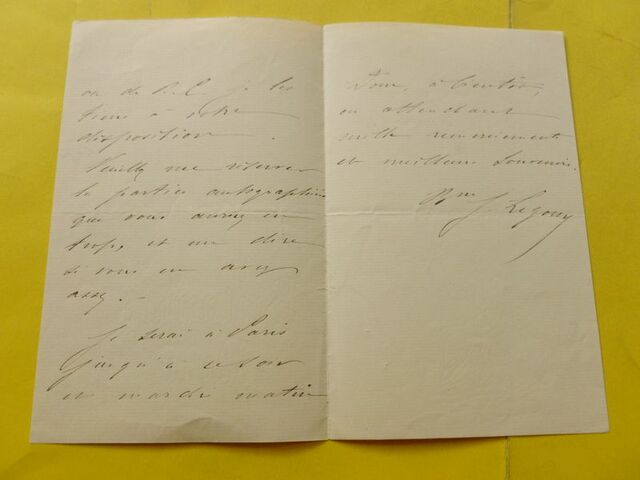 ou de B.C. je les
tiens à votre
disposition.
Veuillez me réserver
la partie autographiée
que vous aurez en
trop, et me dire
si vous en avez
assez. -
Je serai à Paris
jusqu'à ce soir
et mardi matin
Pour, à bientôt,
en attendant
mille remerciements
et meilleurs souvenirs.
Legouy